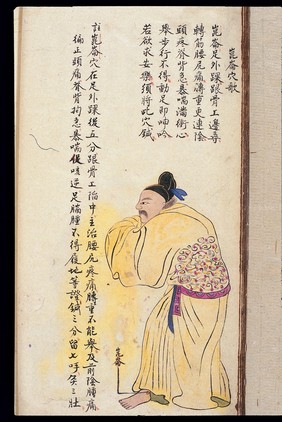 崑崙穴歌
崑崙足外踝跟骨上邊尋
轉筋腰尻痛膊重更連陰
頭疼脊背急暴喘滿衝心
舉步行不得動足即呻吟
若欲求安樂須將此穴鍼
註崑崙穴在足外踝後五分跟骨上陷中主治腰尻疼痛膊重不能舉及前陰腫痛
偏正頭痛脊背拘急暴喘咳逆足腨腫不得履地等證鍼三分留七呼灸三壯
崑崙